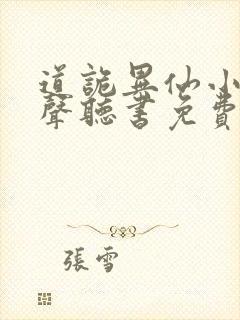 道詭異仙小
聲聽書免費
張雪